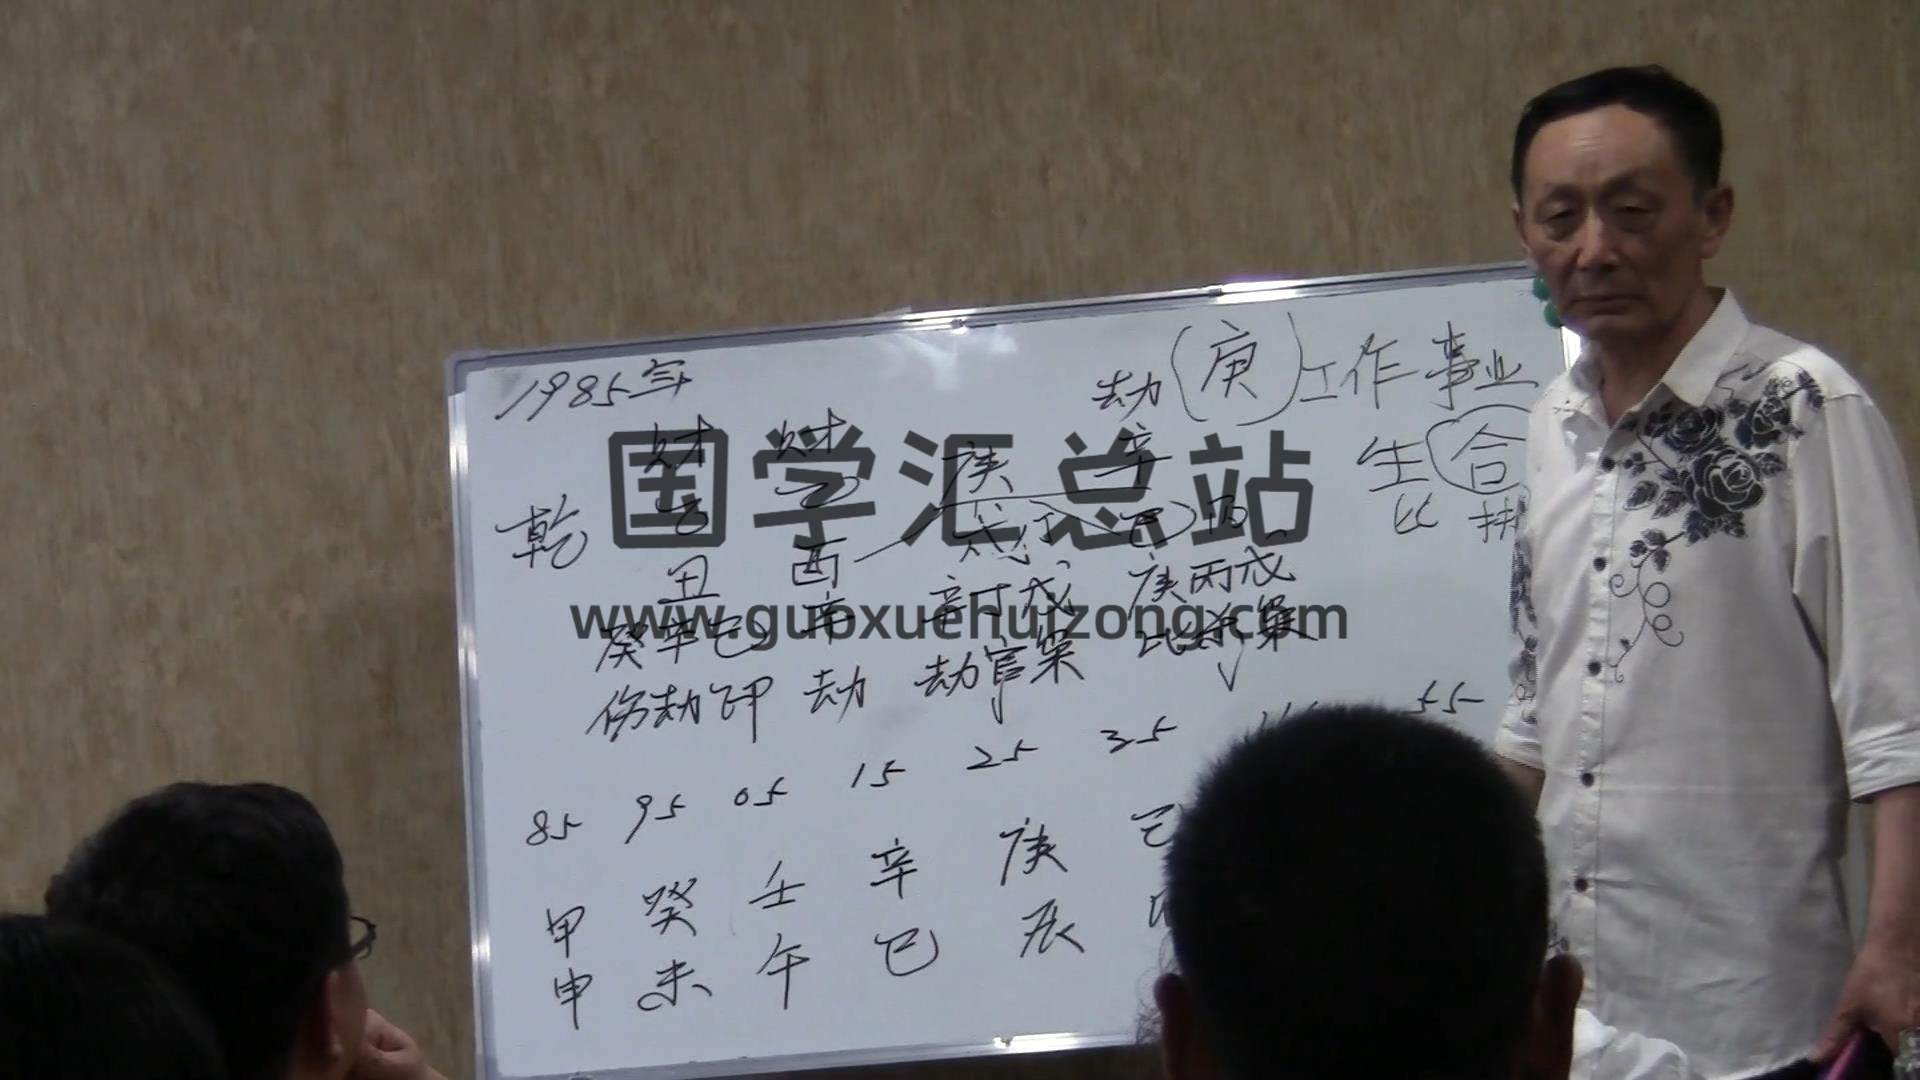 1985年 劫 庚 工作事业
财 财 庚 辛 生 合
国学汇总站
乾 乙 乙 戌 巳 比 扶
丑 酉 辛丁戊 庚丙戊
www.guoxuehuizong.com
癸辛己 辛 劫官枭 比杀枭
伤劫印 劫
85 95 05 15 25 35 55
甲 癸 壬 辛 庚 己
申 未 午 巳 辰